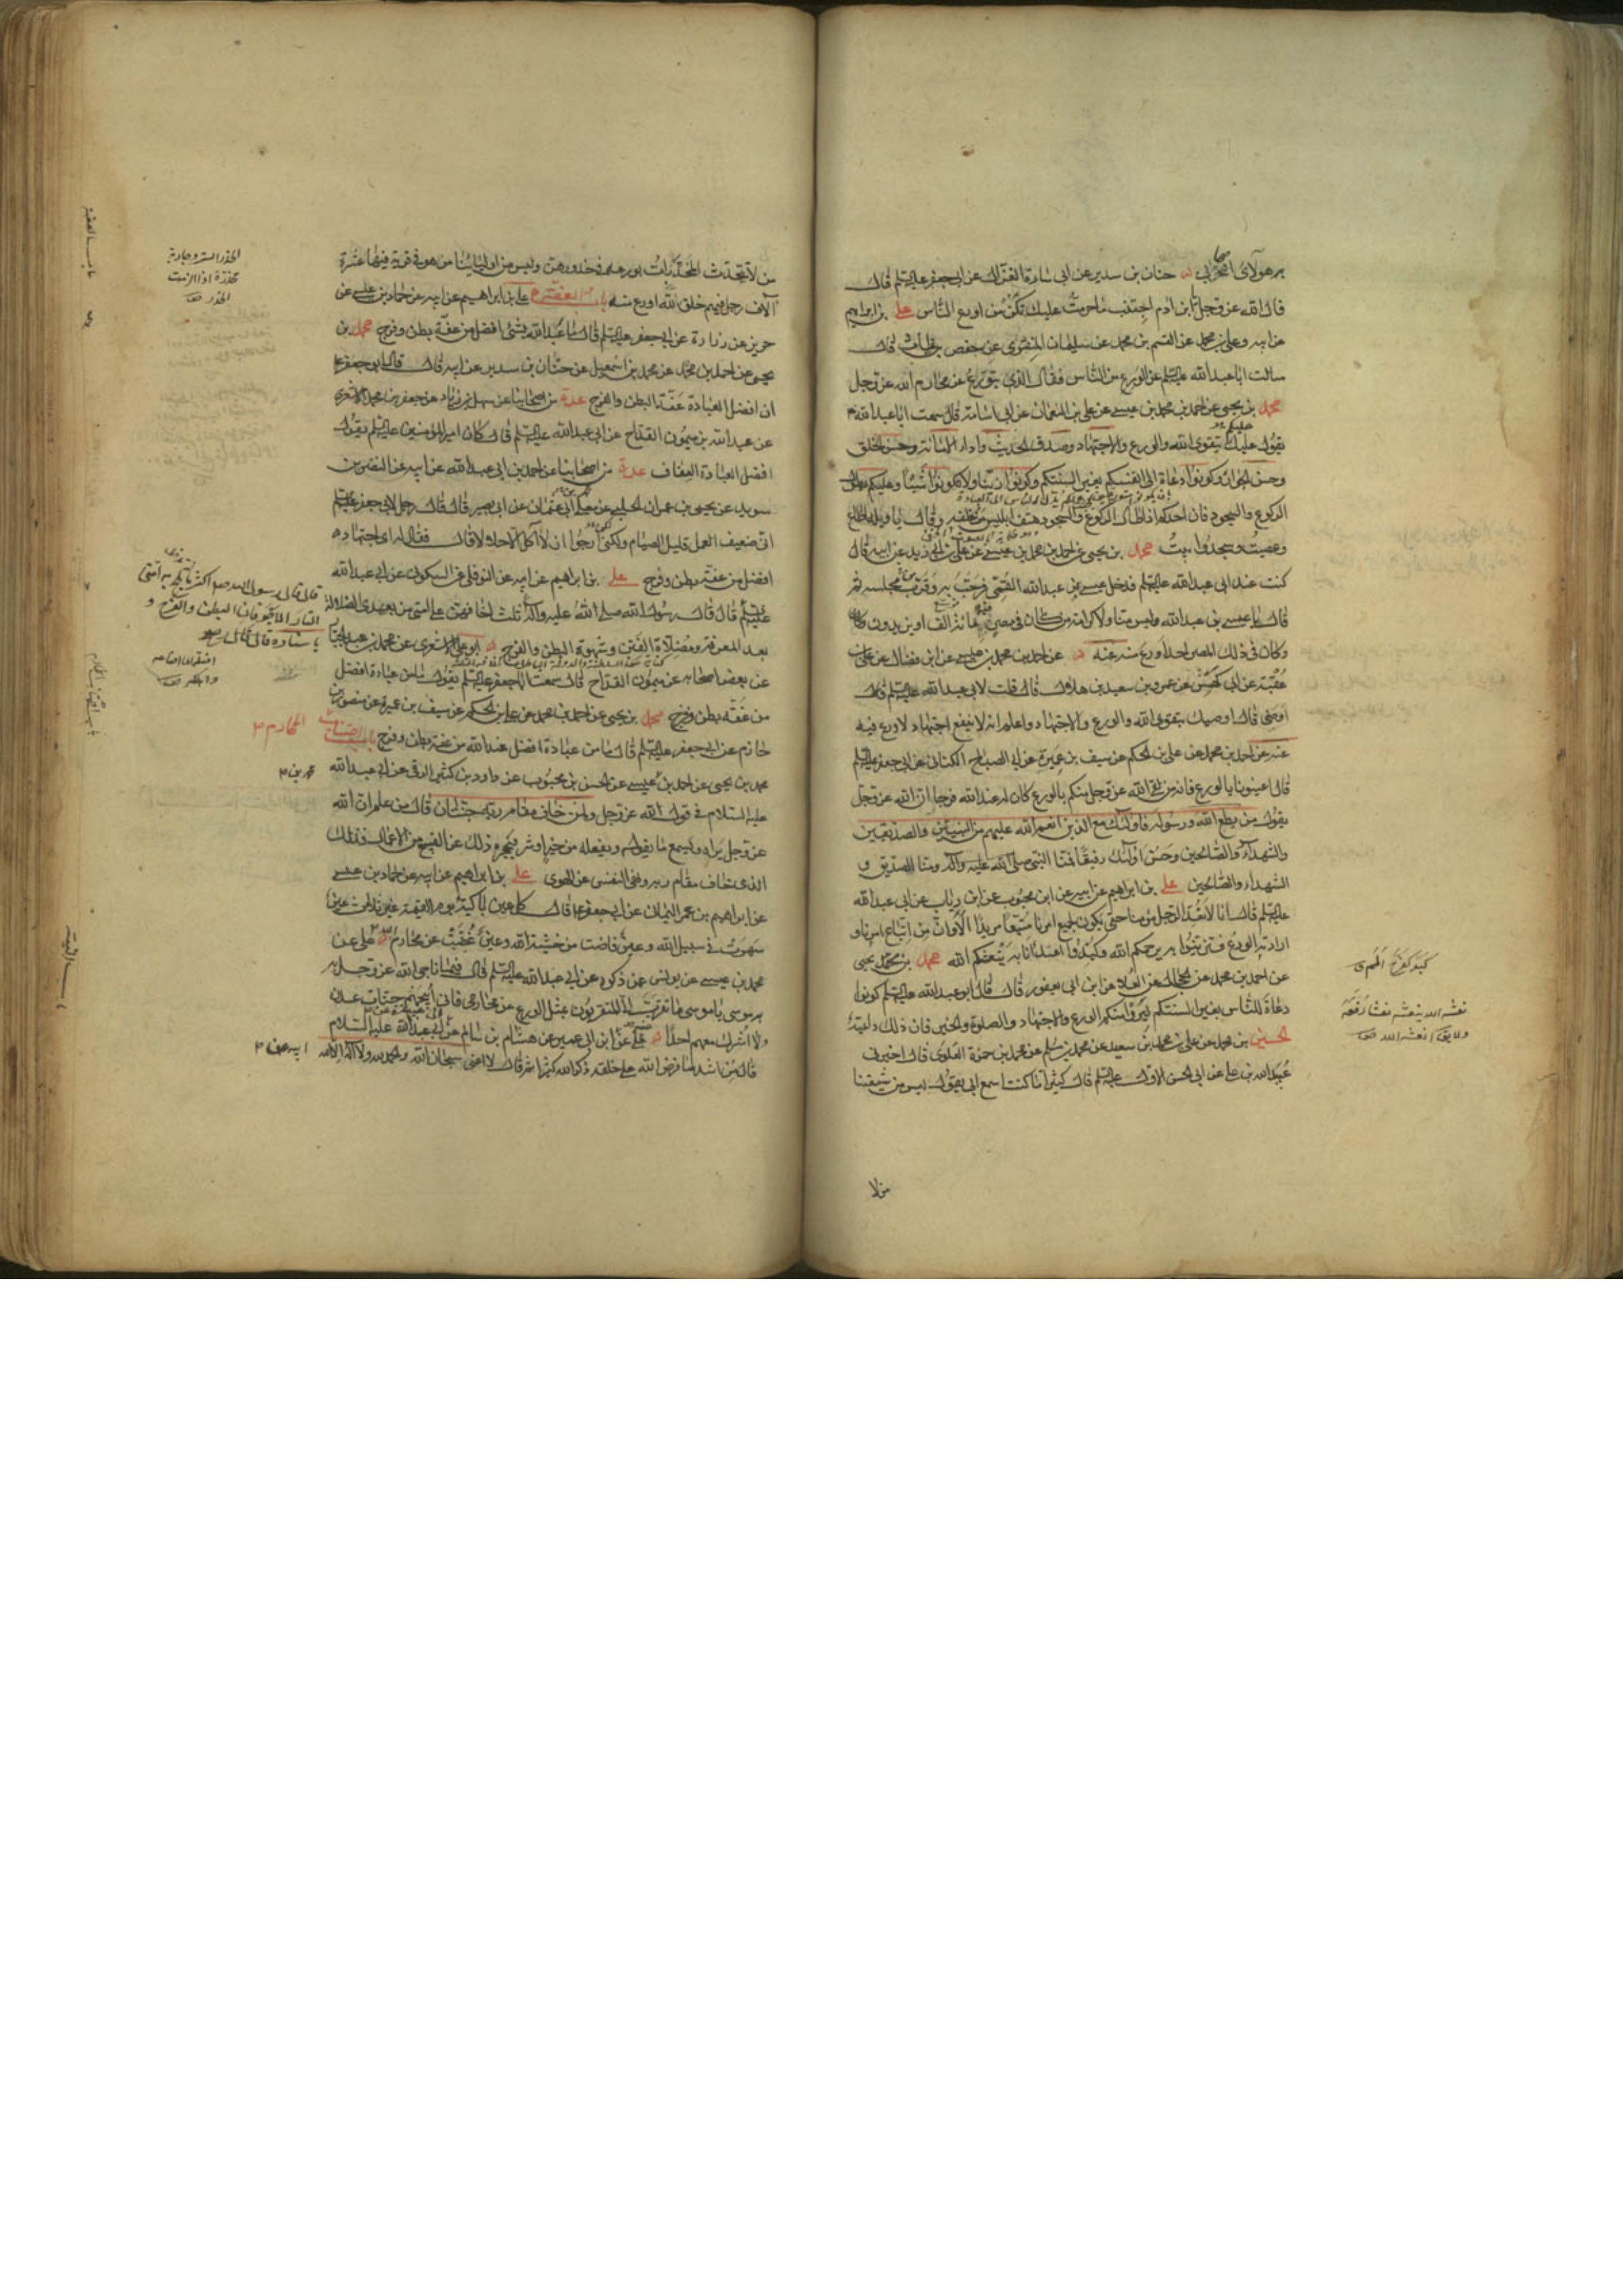 به هؤلاى أصحابى حنان بن سدير عن ابى سارة الغزال عن ابى جعفر عليه السلم قال
قال الله عز وجل ابن ادم اجتنب ما حرمت عليك تكن من اورع الناس على بن ابراهيم
عن ابيه وعلى بن محمد عن القسم بن محمد عن سليمان المنقرى عن حفص بن غياث قال
سالت ابا عبد الله عليه السلم عن الورع من الناس فقال الذى يتورع عن محارم الله عز وجل
محمد بن يحيى عن احمد بن محمد بن عيسى عن على بن النعمان عن ابى اسامة قال سمعت ابا عبد الله ع
يقول عليك بتقوى الله والورع والاجتهاد وصدق الحديث واداء الامانة وحسن الخلق
وحسن الجوار وكونوا دعاة الى انفسكم بغير السنتكم وكونوا زينا ولا تكونوا شينا وعليكم بطول
الركوع والسجود فان احدكم اذا اطال الركوع والسجود هتف ابليس من خلفه وقال يا ويله اطاع
وعصيت وسجد وابيت محمد بن يحيى عن احمد بن محمد بن عيسى عن على بن ابى زيد عن ابيه قال
كنت عند ابى عبد الله عليه السلم فدخل عيسى بن عبد الله القمى فرحب به وقرب مجلسه ثم
قال يا عيسى بن عبد الله وليس منا ولا كرامة من كان فى مصر فيه مائة الف او يزيدون وكان
وكان فى ذلك المصر احد اورع منه عنه عن احمد بن محمد بن عيسى عن ابن فضال عن على بن
عقبة عن ابى كهمس عن عمرو بن سعيد بن هلال قال قلت لابى عبد الله عليه السلم قال
اوصنى قال اوصيك بتقوى الله والورع والاجتهاد واعلم انه لا ينفع اجتهاد لا ورع فيه
عنه عن احمد بن محمد عن على بن الحكم عن سيف بن عميرة عن ابى الصباح الكنانى عن ابى جعفر عليه السلم
قال اعينونا بالورع فانه من لقى الله عز وجل منكم بالورع كان له عند الله فرجا ان الله عز وجل
يقول من يطع الله ورسوله فاولئك مع الذين انعم الله عليهم من النبيين والصديقين
والشهداء والصالحين وحسن اولئك رفيقا فمنا النبى صلى الله عليه وآله ومنا الصديق و
الشهداء والصالحين على بن ابراهيم عن ابيه عن ابن محبوب عن ابن رياب عن ابى عبد الله
عليه السلم قال انا لا نعد الرجل مؤمنا حتى يكون لجميع امرنا متبعا مريدا الا وان من اتباع امرنا و
ارادته الورع فتزينوا به يرحمكم الله وكيدوا اعداءنا به ينعشكم الله محمد بن يحيى
عن احمد بن محمد عن الحجال عن العلا عن ابن ابى يعفور قال قال ابو عبد الله عليه السلم كونوا
دعاة للناس بغير السنتكم ليروا منكم الورع والاجتهاد والصلوة والخير فان ذلك داعية
الحسين بن محمد عن على بن محمد بن سعيد عن محمد بن مسلم عن محمد بن حمزة العلوى قال اخبرنى
عبيد الله بن على عن ابى الحسن الاول عليه السلم قال كثيرا ما كنت اسمع ابى يقول ليس من شيعتنا
من لا
نعشه الله ينعشه نعشا رفعه
ولا يقال انعشه الله صح
من لا تتحدث المخدرات بورعه فى خدورهن وليس من اوليائنا من هو فى قرية فيها عشرة
آلاف رجل فيهم خلق الله اورع منه باب العفة على بن ابراهيم عن ابيه عن حماد بن عيسى عن
حريز عن زرارة عن ابى جعفر عليه السلم قال ما عبد الله بشئ افضل من عفة بطن وفرج محمد بن
يحيى عن احمد بن محمد عن محمد بن اسمعيل عن حنان بن سدير عن ابيه قال قال ابو جعفر ع
ان افضل العبادة عفة البطن والفرج عدة من اصحابنا عن سهل بن زياد عن جعفر بن محمد الاشعرى
عن عبد الله بن ميمون القداح عن ابى عبد الله عليه السلم قال كان امير المؤمنين عليه السلم يقول
افضل العبادة العفاف عدة من اصحابنا عن احمد بن ابى عبد الله عن ابيه عن النضر بن
سويد عن يحيى بن عمران الحلبى عن معلى ابى عثمان عن ابى بصير قال قال رجل لابى جعفر عليه السلم
انى ضعيف العمل قليل الصيام ولكنى ارجوا ان لا آكل الا حلالا قال فقال له اى اجتهاد
افضل من عفة بطن وفرج على بن ابراهيم عن ابيه عن النوفلى عن السكونى عن ابى عبد الله
عليه السلم قال قال رسول الله صلى الله عليه وآله ثلث اخافهن على امتى من بعدى الضلالة
بعد المعرفة ومضلات الفتن وشهوة البطن والفرج ابو على الاشعرى عن محمد بن عبد الجبار
عن بعض اصحابه عن ميمون القداح قال سمعت ابا جعفر عليه السلم يقول ما من عبادة افضل
من عفة بطن وفرج محمد بن يحيى عن احمد بن محمد عن على بن الحكم عن سيف بن عميرة عن منصور بن
حازم عن ابى جعفر عليه السلم قال ما من عبادة افضل عند الله من عفة بطن وفرج باب اجتناب المحارم
محمد بن يحيى عن احمد بن عيسى عن الحسن بن محبوب عن داود بن كثير الرقى عن ابى عبد الله
عليه السلام فى قول الله عز وجل ولمن خاف مقام ربه جنتان قال من علم ان الله
عز وجل يراه ويسمع ما يقوله ويفعله من خير او شر فيحجزه ذلك عن القبيح من الاعمال فذلك
الذى خاف مقام ربه ونهى النفس عن الهوى على بن ابراهيم عن ابيه عن حماد بن عيسى
عن ابراهيم بن عمر اليمانى عن ابى جعفر ع قال كل عين باكية يوم القيمة غير ثلث عين
سهرت فى سبيل الله وعين فاضت من خشية الله وعين غضت عن محارم الله على عن
محمد بن عيسى عن يونس عمن ذكره عن ابى عبد الله عليه السلم قال فيما ناجى الله عز وجل به
موسى يا موسى ما تقرب الى المتقربون بمثل الورع عن محارمى فانى ابيحهم جنات عدن
ولا اشرك معهم احدا على عن ابن ابى عمير عن هشام بن سالم عن ابى عبد الله عليه السلام
قال من اشد ما فرض الله على خلقه ذكر الله كثيرا ثم قال لا اعنى سبحان الله والحمد لله ولا اله الا الله
قال قال رسول الله صم اكثر ما تلج به امتى
النار الاجوفان البطن والفرج و
باسناده قال قال